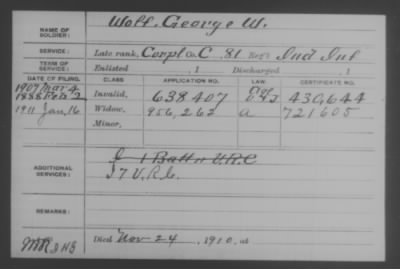 NAME OF SOLDIER: Wolf, George W.
SERVICE: Late rank, Corpl Co. C, 81 Reg't Ind Inf
TERM OF SERVICE: Enlisted , 1 Discharged , 1
DATE OF FILING. CLASS APPLICATION NO. LAW. CERTIFICATE NO.
1907 Mar 4
1888 Feb 2 Invalid, 638407 430,644
1911 Jan 16 Widow, 956,262 a 721605
Minor,
ADDITIONAL SERVICES: I 1 Batt V.R.C
I 7 V.R.C.
REMARKS:
Died Nov 24, 1910, at